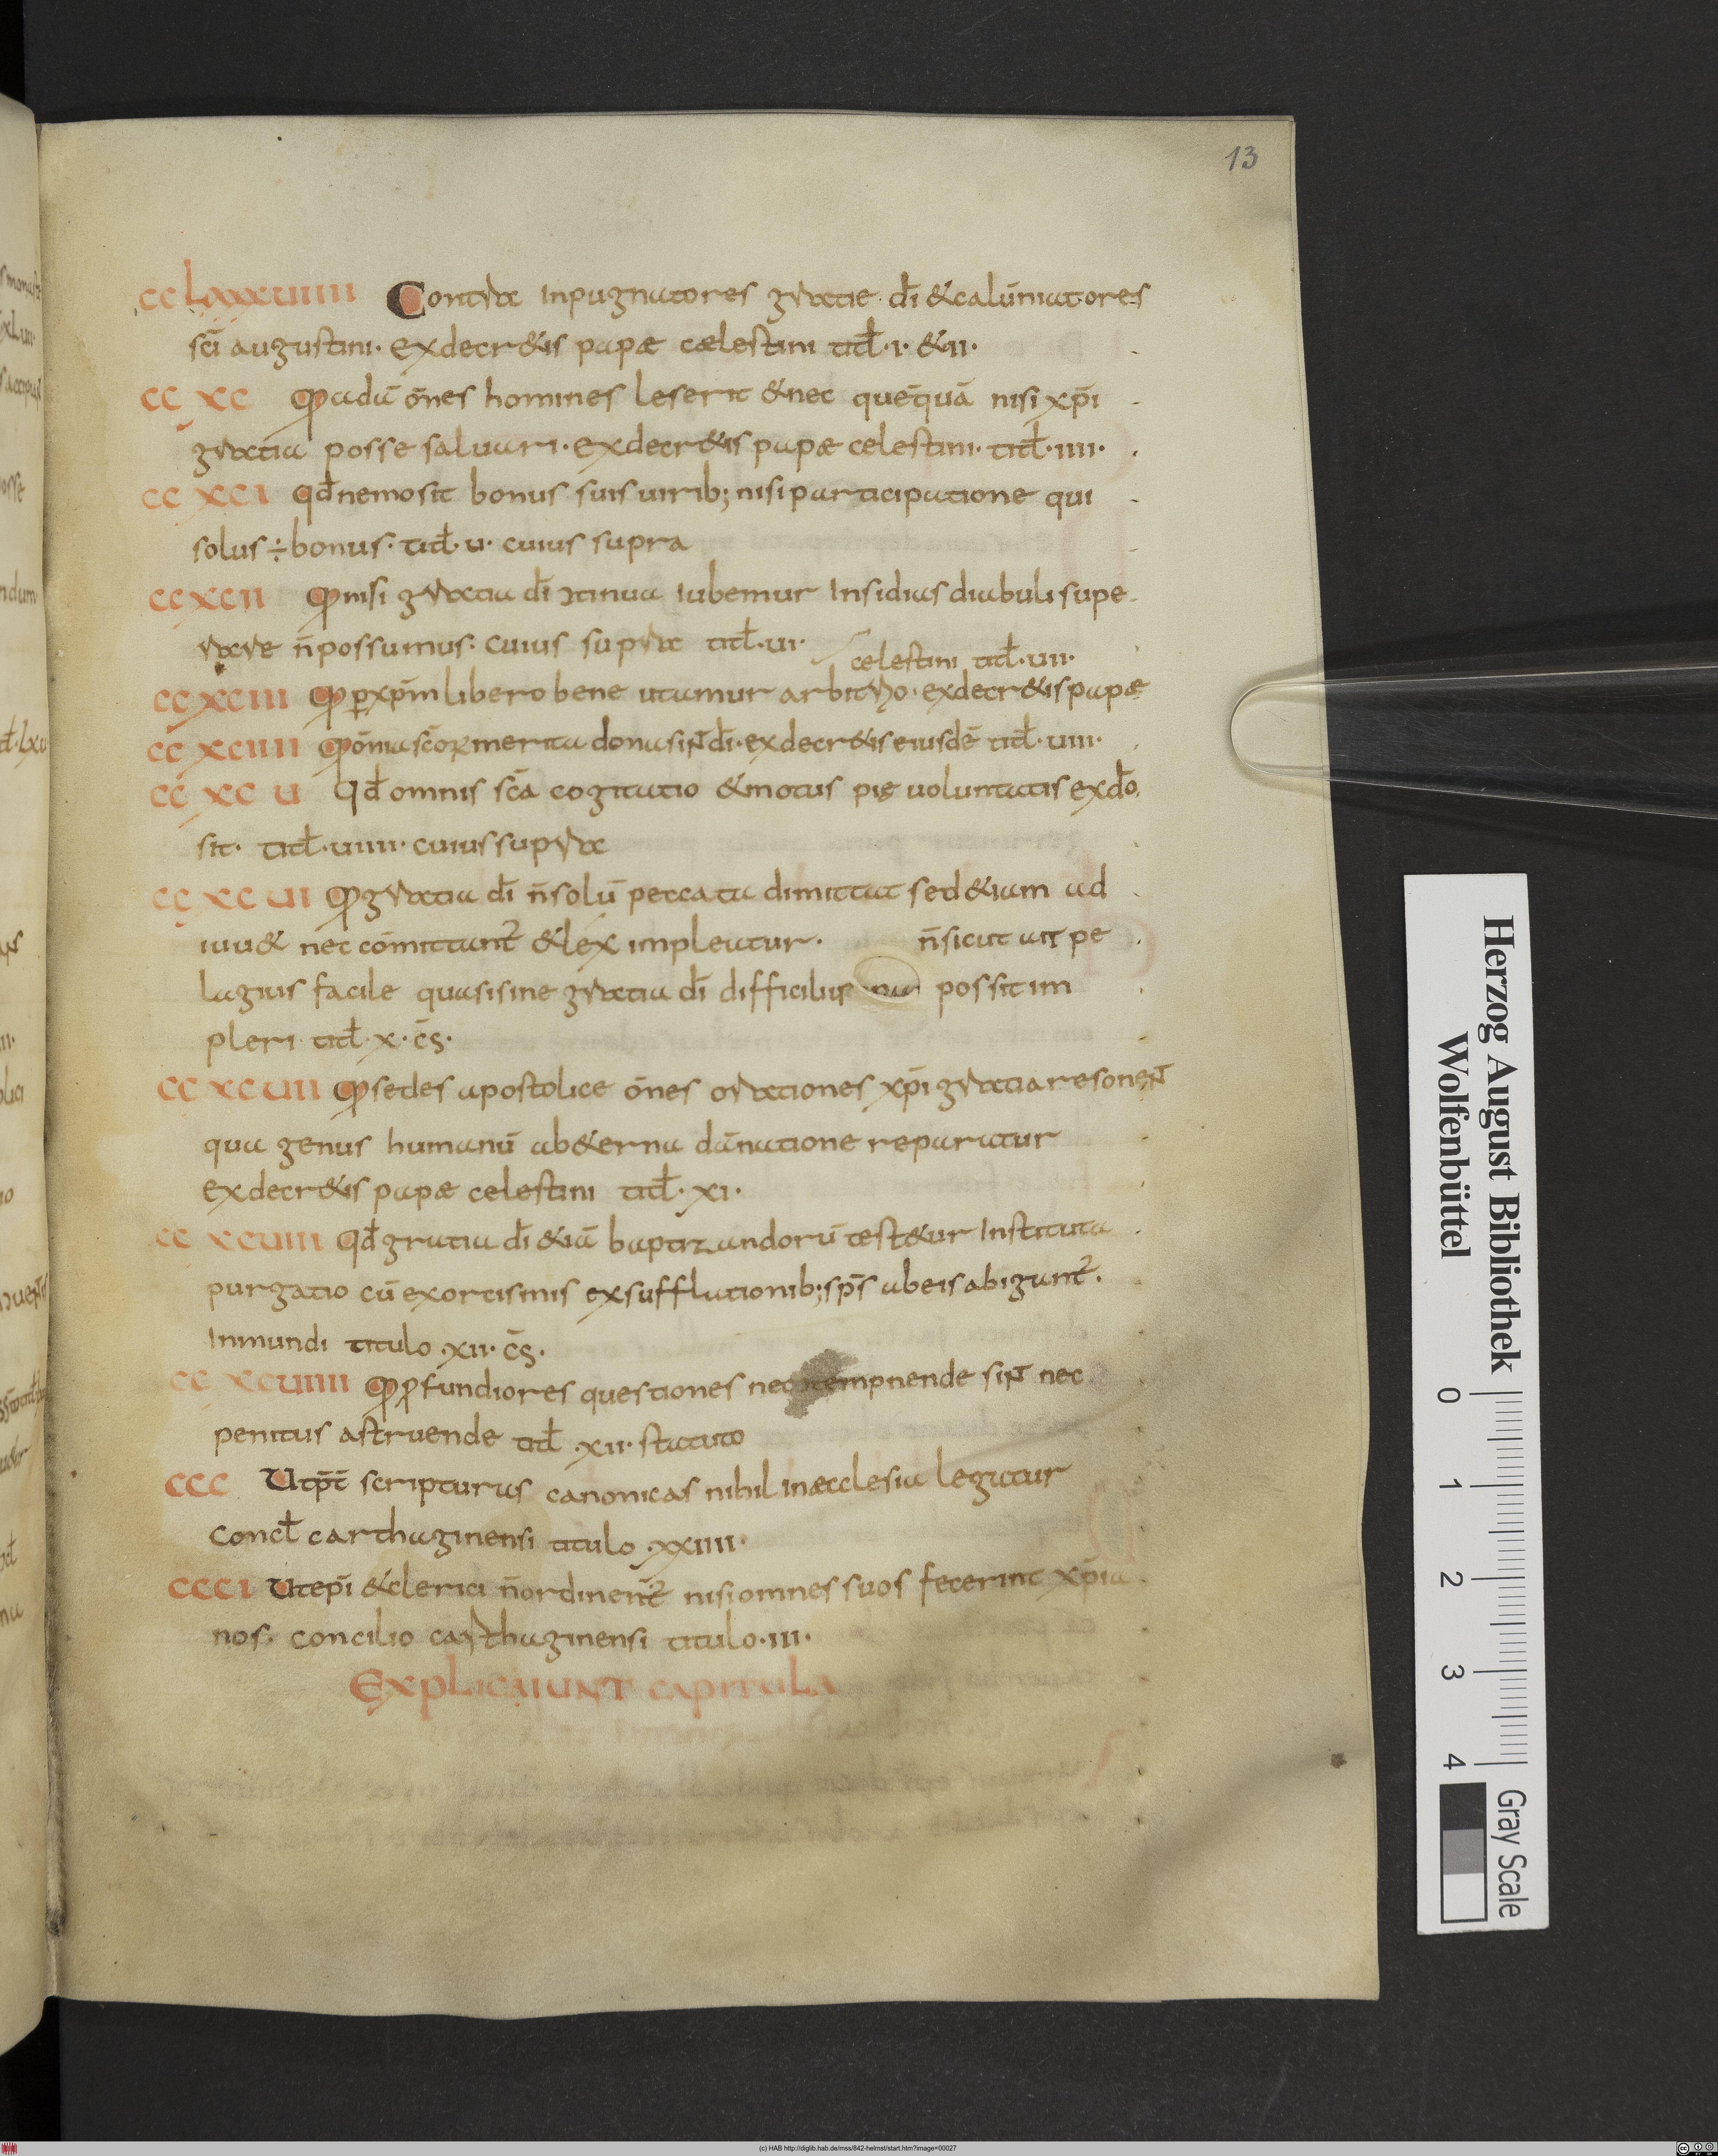 13
CCLXXXUIIII Contra inpugnatores gratie dī & calūniatores
scī augustini· ex decr&is papæ cælestini titł·i·&ii·
CC XC Q adā ōnes homines leserit & nec quēquā nisi xp̄i
gratia posse saluari· ex decr&is papæ celestini· titł·iiii·
CC XCI qđ nemo sit bonus suis uirib; nisi participatione qui
solus ÷ bonus· titł·u· cuius supra
CC XCII Q nisi gratia dī ɔtinua iubemur insidias diabuli supe
rare n̄ possumus· cuius supra titł·ui·
celestini titł·uii·
CC XCIII Q ꝑ xp̄m libero bene utamur arbitrio· ex decr&is papæ
CC XCIIII Q ōnia scōꝝ merita dona sint dī· ex decr&is eiusdē titł·uiii·
CC XC U Qđ omnis scā cogitatio & motus pię uoluntatis ex dō
sit· titł·uiiii· cuius supra
CC XC UI Q gratia dī n̄ solū peccata dimittat sed & iam ad
iuu& nec cōmittant² & lex impleatur· n̄ sicut ait pe
lagius facile quasi sine gratia dī difficilius possit im
pleri titł·x·c̄s·
CC XCUII Q sedes apostolice ōnes orationes xp̄i gratia resonent
qua genus humanū ab &erna dānatione reparatur
ex decr&is papæ celestini titł·xi·
CC XCUIII qđ gratia dī & iā baptizandorū test&ur instituta
purgatio cū exorcismis exsufflationib; sp̄s ab eis abigunt²·
inmundi titulo·xii·c̄s·
CC XCUIIII Q ꝓfundiores questiones nec ɔtempnende sint nec
penitus astruende titł·xii· statuto
CCC Ut p̄t scripturas canonicas nihil in æcclesia legatur
Concł carthaginensi titulo·xxiiii·
CCCI Ut ep̄i & clerici n̄ ordinent² nisi omnes suos fecerint xp̄ia
nos· concilio carthaginensi titulo·iii·
EXPLICAIUNT CAPITULA
Herzog August Bibliothek
Wolfenbüttel
0 1 2 3 4
Gray Scale
(c) HAB http://diglib.hab.de/mss/842-helmst/start.htm?image=00027